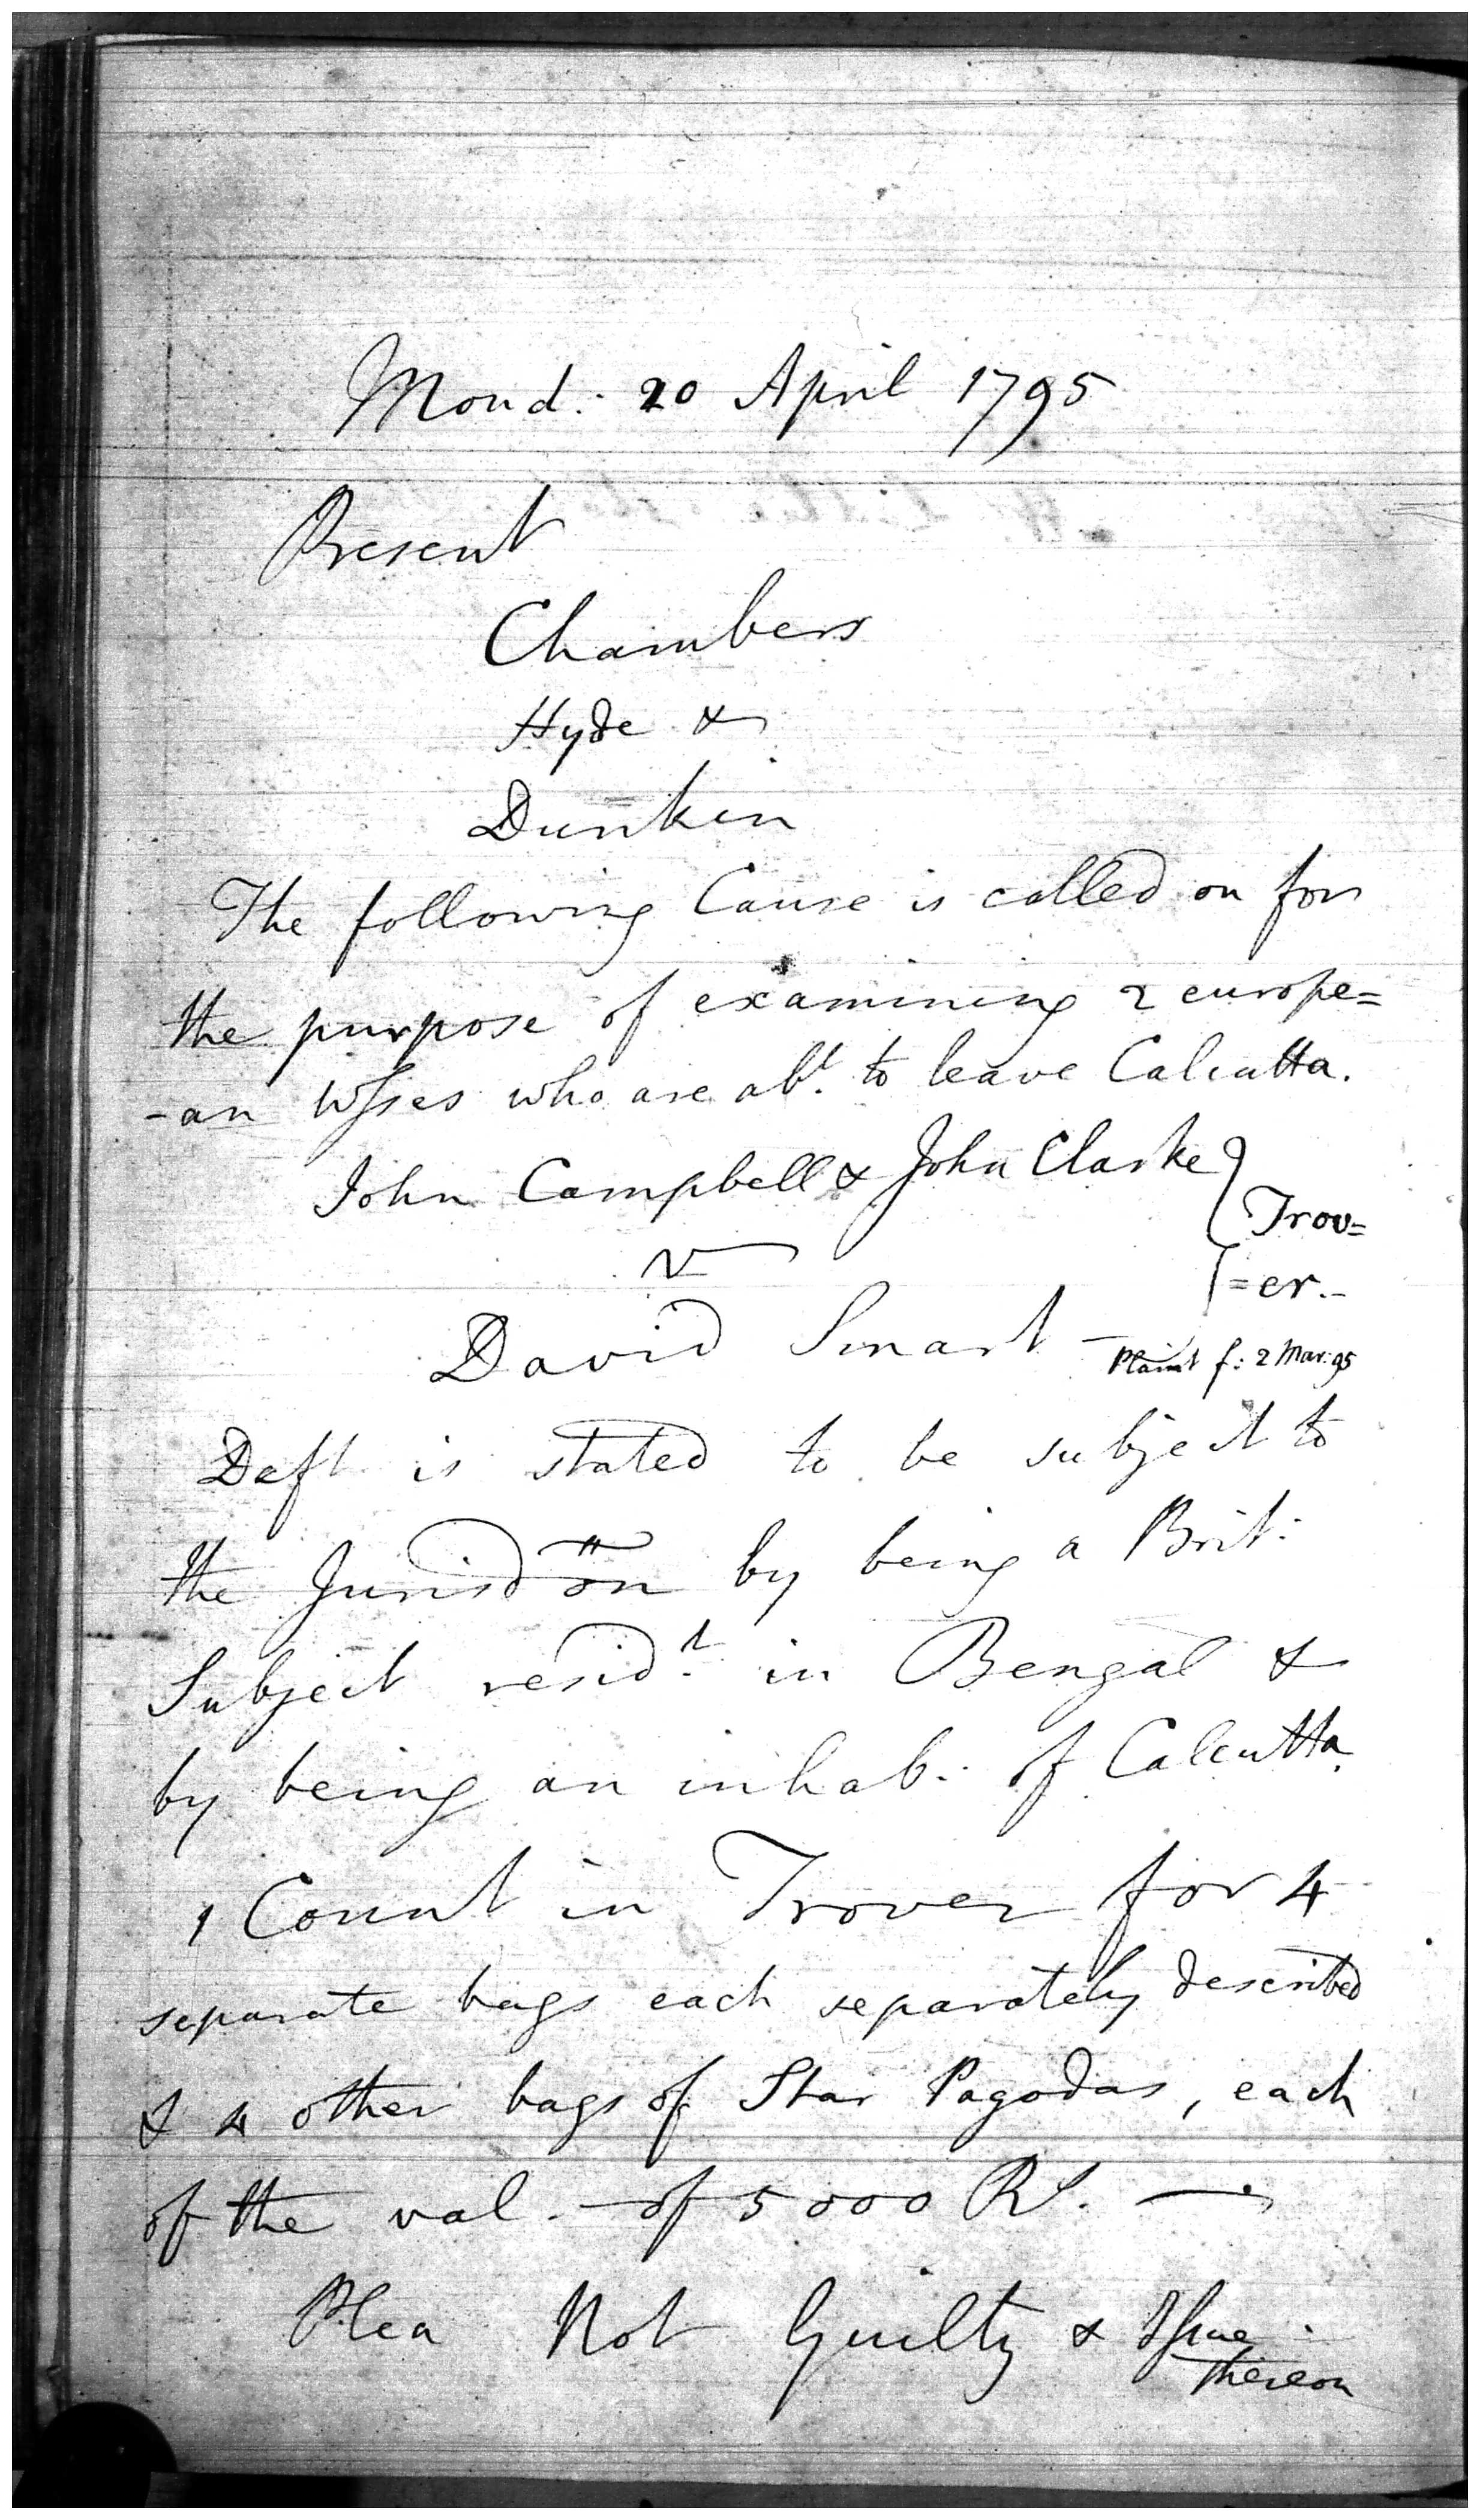 Mond: 20 April 1795
Present
Chambers
Hyde &
Dunkin
The following Cause is called on for
the purpose of examining 2 europe=
-an Wsses who are abt. to leave Calcutta.
John Campbell & John Clarke } Trov=
v =er.-
David Smart - Plaint f: 2 Mar: 95
Deft. is stated to be subject to
the Jurisdon by being a Brit:
Subject residt. in Bengal &
by being an inhab: of Calcutta.
1 Count in Trover for 4
separate bags each separately described
& 4 other bags of Star Pagodas, each
of the val. of 5000 Rs. —
Plea Not Guilty & Issue
thereon